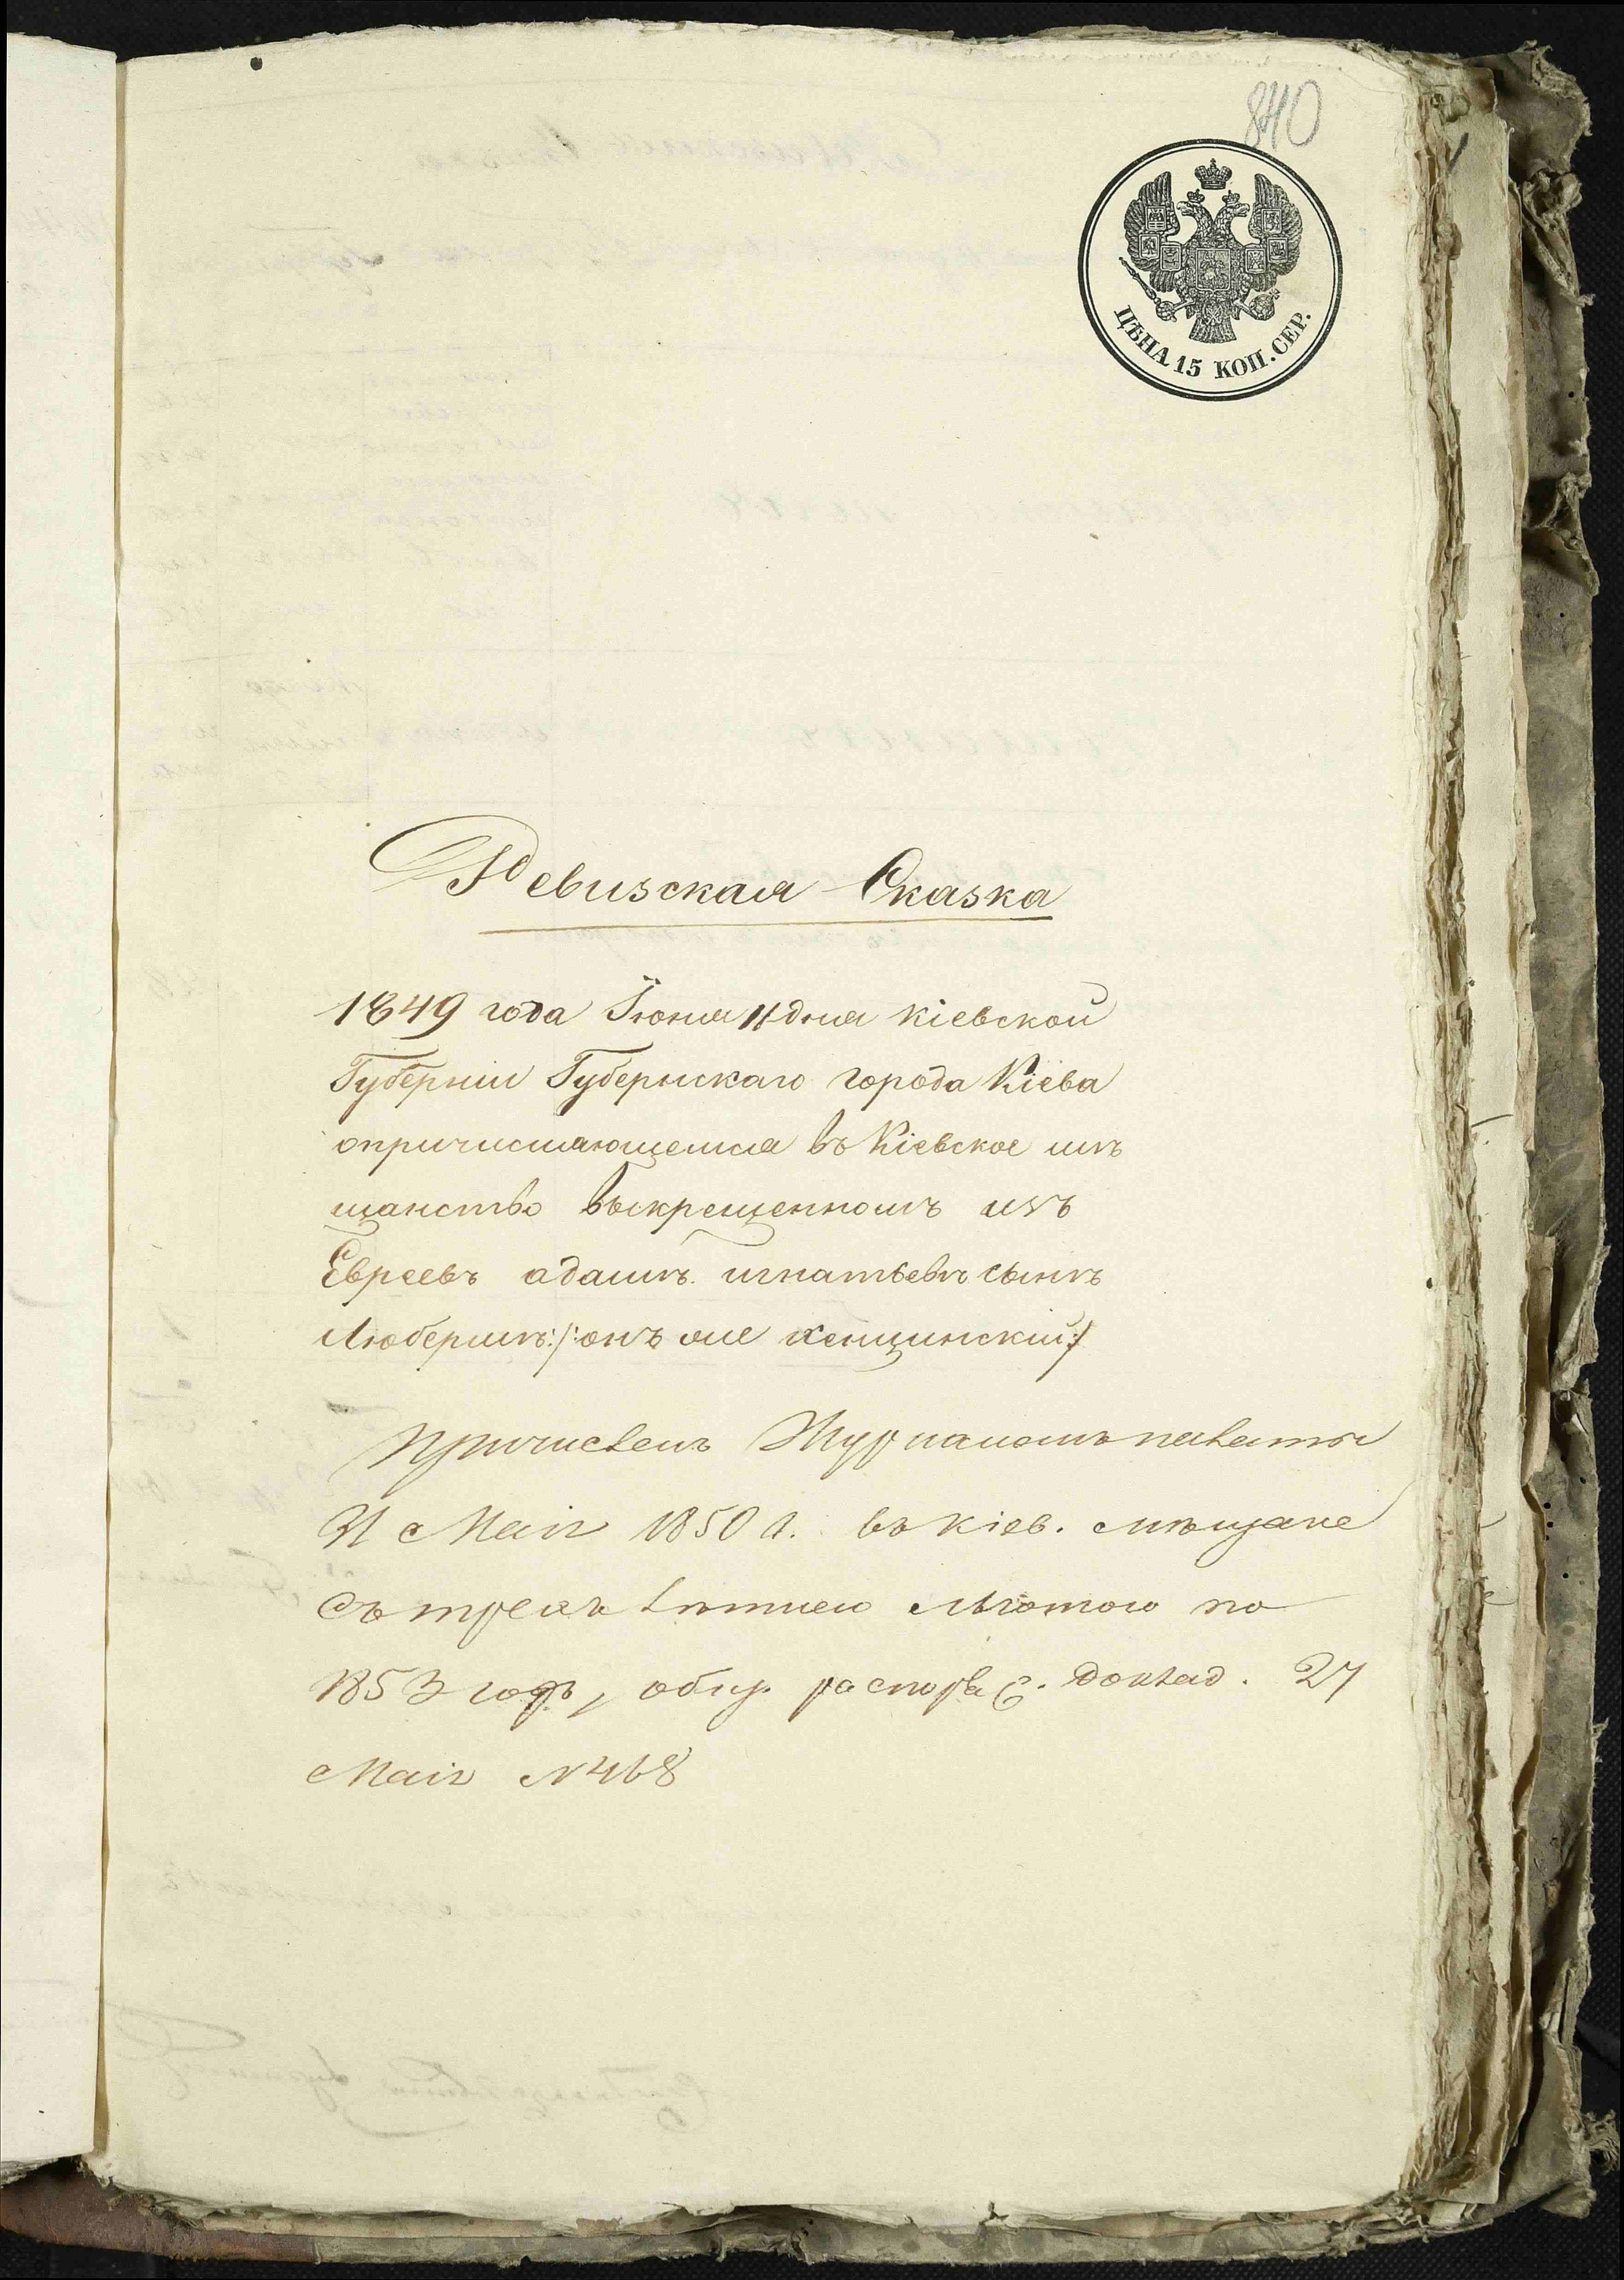 840
ЦѢНА 15 КОП. СЕР.
Ревизская Сказка
1849 года Іюня 11 дня Кіевской
Губерніи Губернскаго города Кіева
опричисляющемся въ Кіевское мѣ
щанство выкрещенномъ изъ
Евреевъ адамѣ игнатьевѣ сынѣ
Любермѣ /:онъ же женщинскій:/
Причисленъ Журналомъ палаты
31 Маія 1850 г. въ кіев. мѣщане
съ трехъ лѣтнею льготою по
1853 годъ, общ. распоряд. доклад. 27
Маія №468